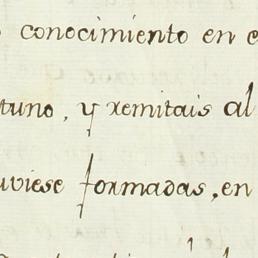 conocimiento en
tuno, y remitais al
uviese formadas, en